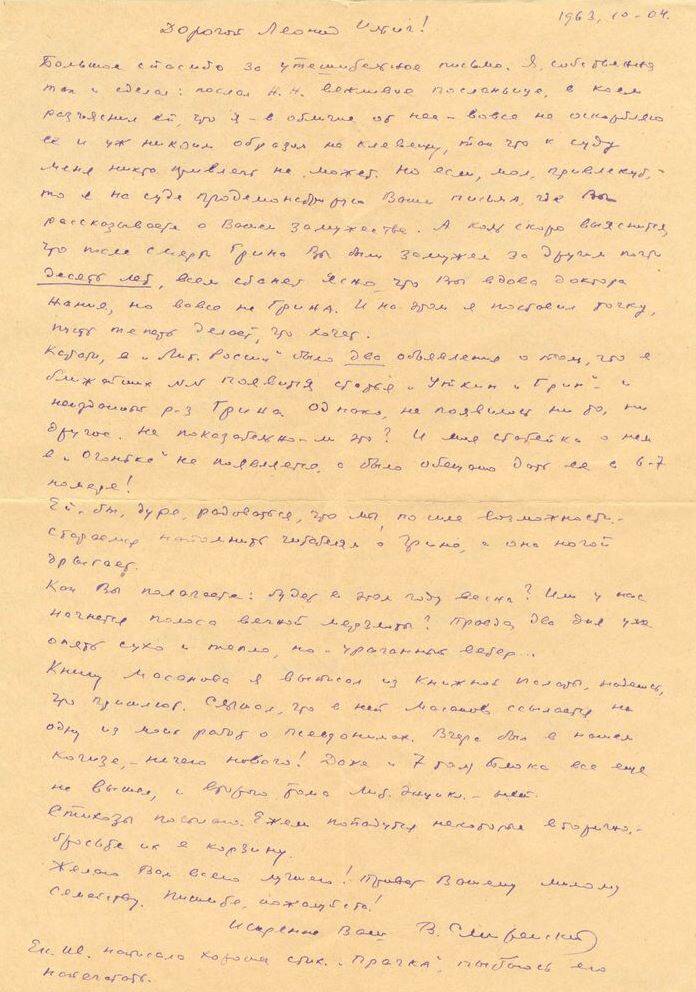 1963, 10-04.
Дорогой Леонид Ильич!
Большое спасибо за утешительное письмо. Я, собственно
так и сделал: послал Н.Н. вежливое посланьице, в коем
разъяснил ей, что я – в отличие от нее – вовсе не оскорбляю
ее и уж никоим образом не клевещу, так что к суду
меня никто привлечь не может. Но если, мол, привлекут, –
то я на суде продемонстрирую Ваши письма, где Вы
рассказываете о Вашем замужестве. А коль скоро выяснится,
что после смерти Грина Вы были замужем за другим почти
десять лет, всем станет ясно, что Вы вдова доктора
Нания, но вовсе не Грина. И на этом я поставил точку,
пусть теперь делает, что хочет.
Кстати, в "Лит. России" было два объявления о том, что в
ближайших №№ появится статья "Уткин и Грин" и
неизданный р-з Грина. Однако, не появилось ни то, ни
другое. Не показательно-ли это? И моя статейка о нем
в "Огоньке" не появляется, а было обещано дать ее в 6-7
номере!
Ей, бы, дуре, радоваться, что мы, по мере возможности, –
стараемся напомнить читателям о Грине, а она ногой
дрыгает.
Как Вы полагаете: будет в этом году весна? Или у нас
начнется полоса вечной мерзлоты? Правда, два дня уже
опять сухо и тепло, но – ураганный ветер...
Книгу Масанова я выписал из Книжной Палаты, надеюсь,
что пришлют. Слышал, что в ней Масанов ссылается на
одну из моих работ о псевдонимах. Вчера был в нашем
Когизе, – ничего нового! Даже и 7 том Блока все еще
не вышел, и второго тома Лит. энцикл. – нет.
Стихозы посылаю. Ежели попадутся некоторые вторично, –
бросьте их в корзину.
Желаю Вам всего лучшего! Привет Вашему милому
семейству. Пишите, пожалуйста!
Искренне Ваш В. Смиренский
Ек. Ив. написала хороший стих. "Прачка", пытаюсь его
напечатать.